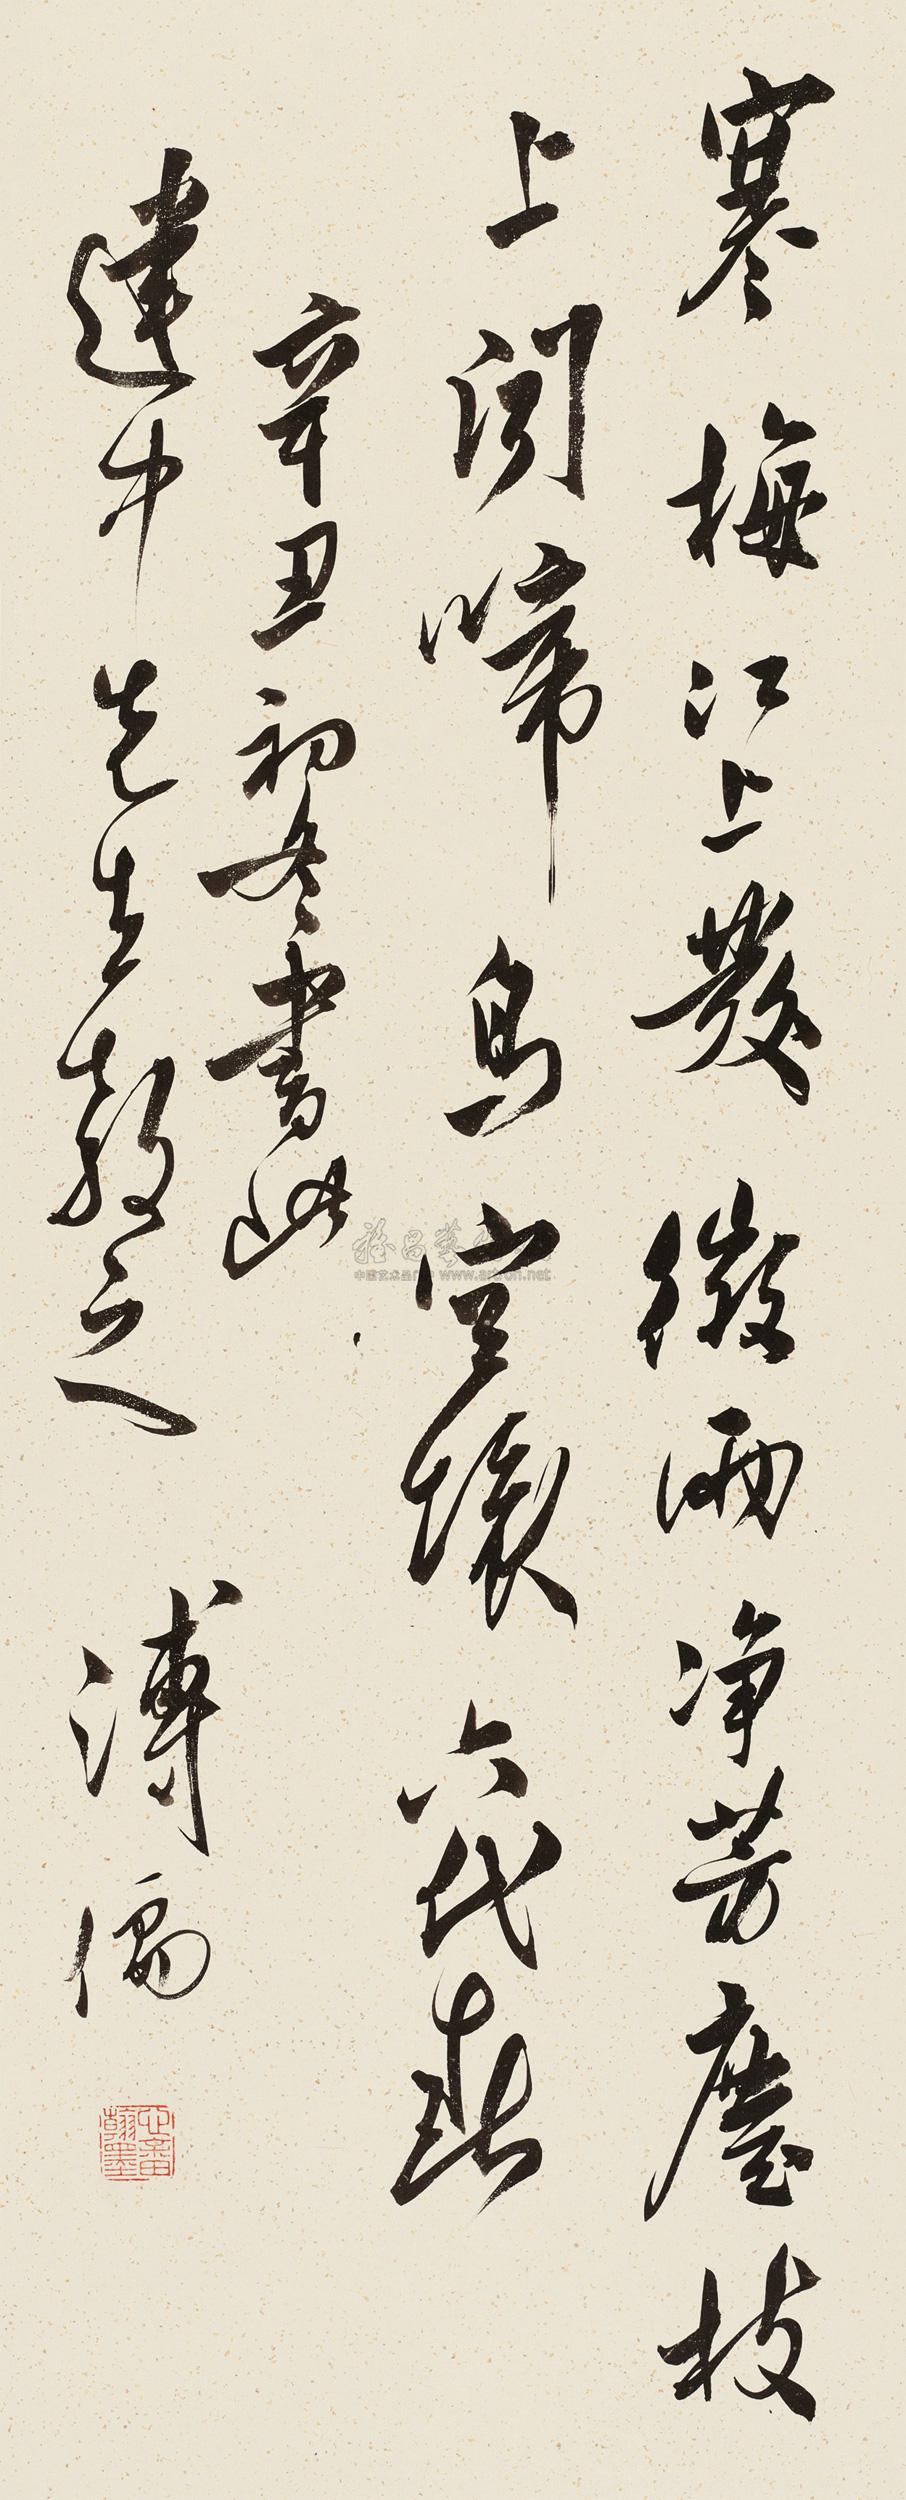 寒梅江上發微雨净芳塵枝
上聞啼鳥空懷六代春
辛丑初冬書此
建中先生教之 溥儒
心畬翰墨
www.artron.net